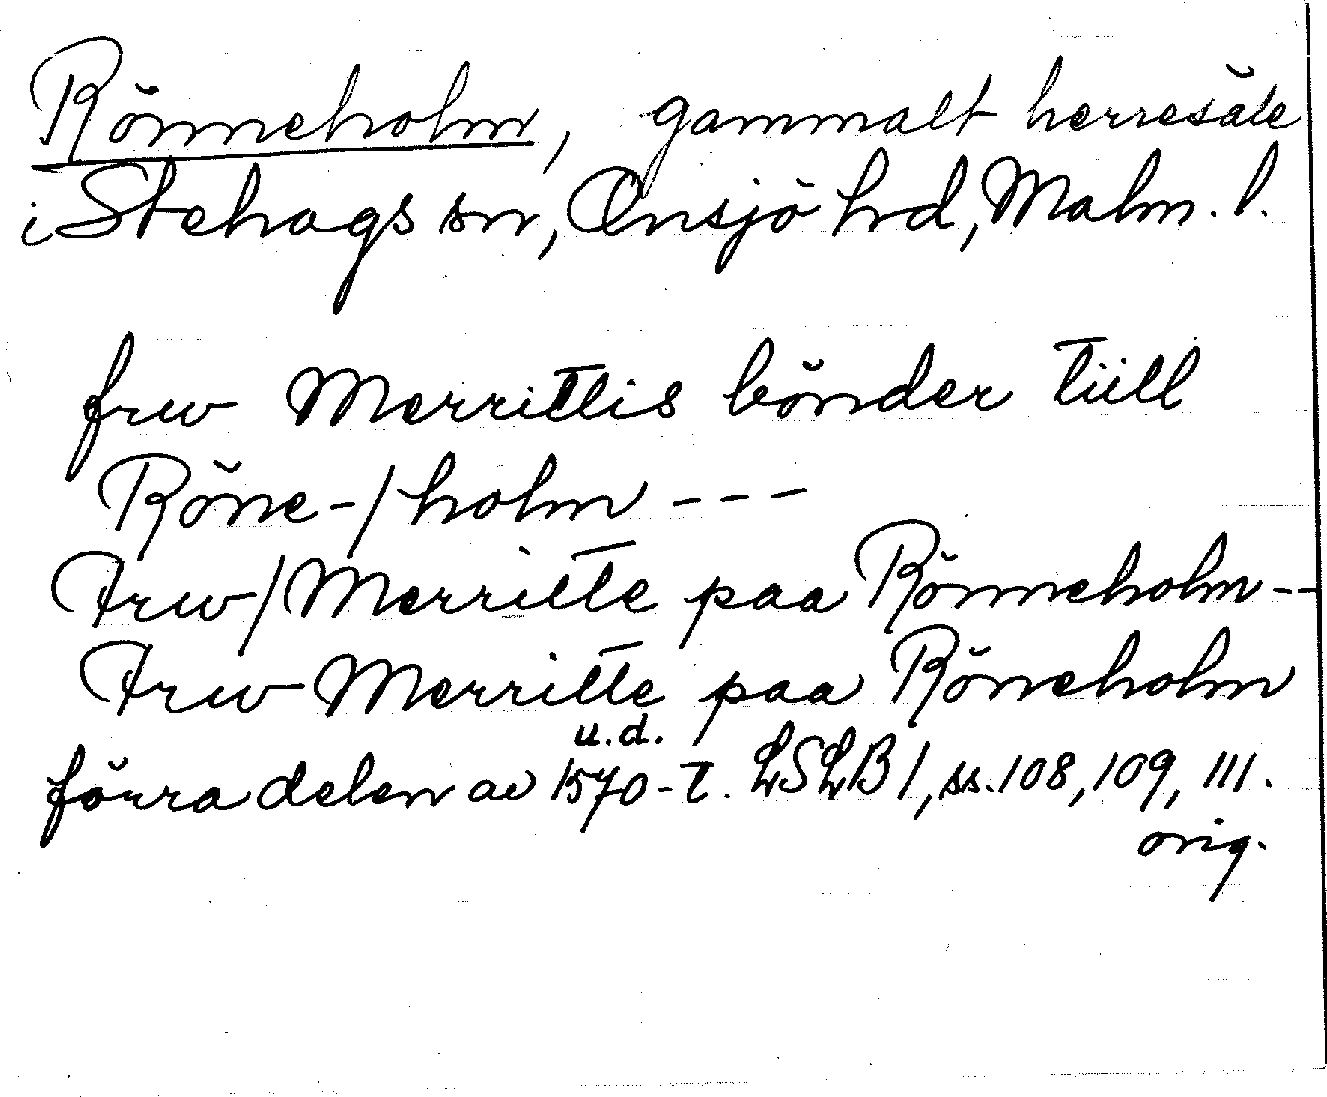 Rönneholm, gammalt herresäte
i Stehags sn, Onsjö hrd, Malm. l.
frw Merrittis bönder tiill
Röne-/holm ---
Frw/Merritte paa Rönneholm --
Frw Merritte paa Röneholm
u.d.
förra delen av 1570-t. LSLB 1, ss. 108, 109, 111.
orig.